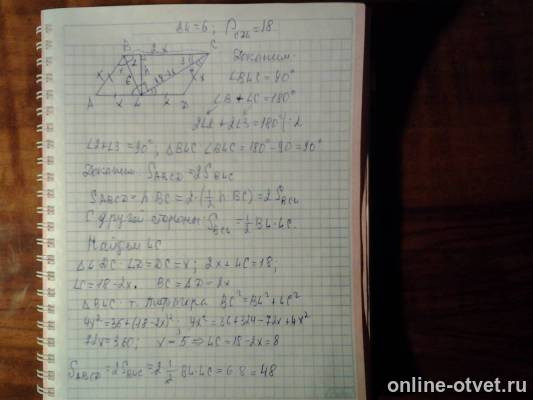 BL=6; P_CDL=18
B 2x C
A x L D
Докажем:
∠BLC=90°
∠B+∠C=180°
2∠2+2∠3=180° |:2
∠2+∠3=90°; ΔBLC ∠BLC=180°-90=90°
Докажем S_ABCD=2S_BLC
S_ABCD=h·BC=2·(1/2 h·BC)=2S_BCL
С другой стороны: S_BCL=1/2 BL·LC.
Найдём LC
ΔLDC LD=DC=x; 2x+LC=18;
LC=18-2x. BC=AD=2x
ΔBLC т. Пифагора BC²=BL²+LC²
4x²=36+(18-2x)²; 4x²=36+324-72x+4x²
72x=360; x=5 ⇒ LC=18-2x=8
S_ABCD=2S_BLC=2·1/2 BL·LC=6·8=48
online-otvet.ru